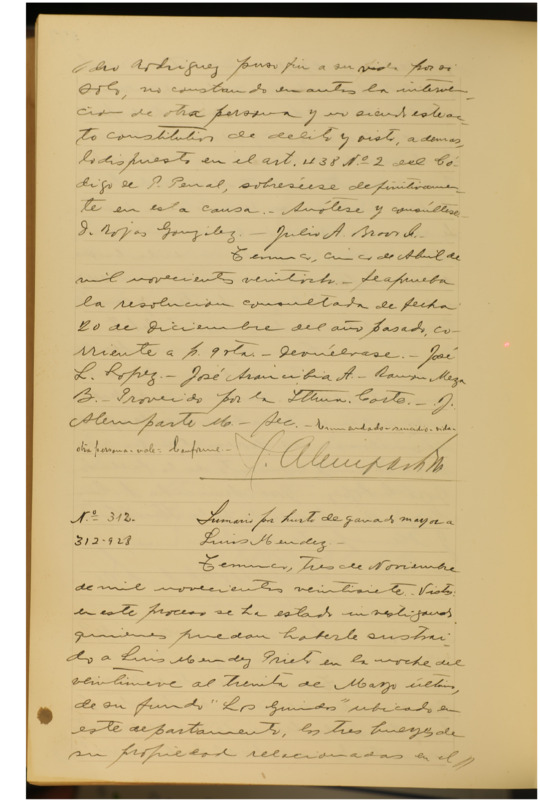 Rodriguez puso fin a su vida por si
solo, no constando en autos la interven-
cion de otra persona y no siendo este ac-
to constitutivo de delito y visto, ademas,
lo dispuesto en el art. 438 Nº 2 del Có-
digo de P. Penal, sobreséese definitivamen-
te en esta causa.- Anótese y consúltese.-
D. Rojas González.- Julio A. Bravo S.
Temuco, cinco de Abril de
mil novecientos veintiocho.- Se aprueba
la resolucion consultada de fecha
20 de diciembre del año pasado, co-
rriente a p. 9 vta.- devuélvase.- José
L. Lopez.- José Arancibia A.- Ramon Meza
B.- Proveido por la Iltma. Corte.- J.
Alemparte M.- Sec.- Enmendado- vida-
otra persona- vale- Conforme.-
J. Alemparte M
N.º 312.
312-928
Sumario por hurto de ganado mayor a
Luis Mendez.-
Temuco, tres de Noviembre
de mil novecientos veintisiete. Vistos:
en este proceso se ha estado investigando
quienes puedan haberle sustrai-
do a Luis Mendez Prieto en la noche del
veintinueve al treinta de Marzo último,
de su fundo "Los Guindos" ubicado en
este departamento, los tres bueyes de
su propiedad relacionadas en el //